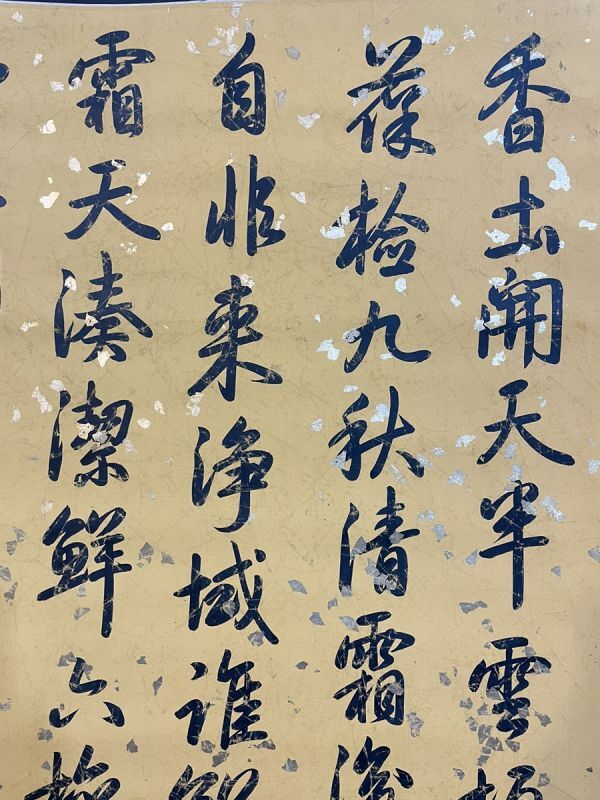 香土開天半雲
葆檢九秋清霜
自非來淨域誰
霜天湊潔鮮六